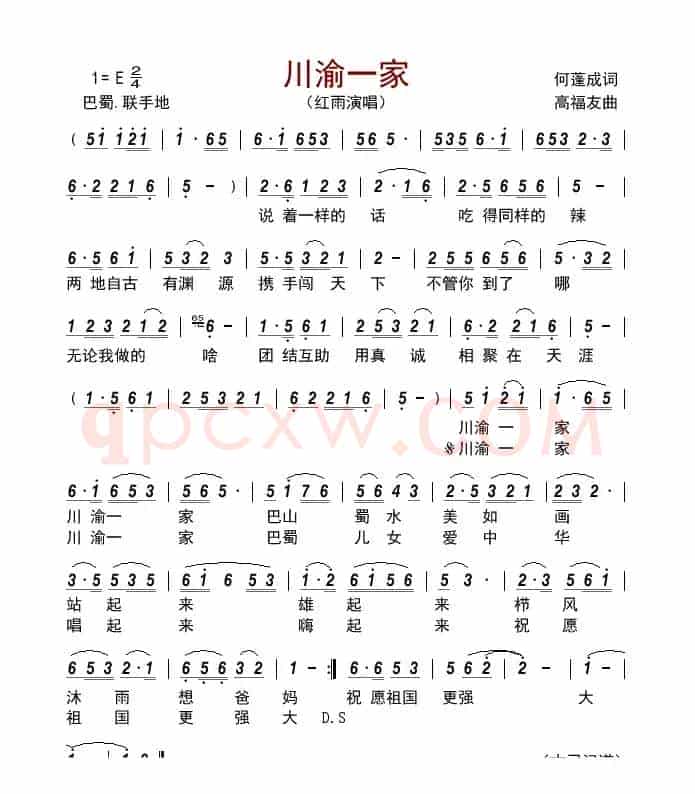 川渝一家
1=E 2/4
何蓬成词
巴蜀.联手地
（红雨演唱）
高福友曲
( 51 121 | 1· 65 | 6·1 653 | 35· | 535 6·1 653
6·2 221 6 | 5 - ) | 2·6 1 2 3 | 2·1 6 | 2·5 6 5 6 | 5 ·
说 着一样的 话 吃 得同样的 辣
6·5 6 1 | 5 3 2 3 | 6·5 3 2 1 | 2 - | 2 5 5 6 5 6 | 5· 3 2
两 地自古 有渊 源 携 手闯 天 下 不管你 到了 哪
1 2 3 2 1 2 | 65 6 - | 1·5 6 1 | 2 5 3 2 1 | 5 6 2 2 1 6 | 5 -
无论我做的 啥 团 结互助 用真 诚 相 聚 在 天 涯
( 1·5 6 1 | 2 5 3 2 1 | 6·1 6 5 3 | 6 2 2 2 1 6 | 5 - ) | 5 1 2 1 | 1· 6 5
qpcxw.COM
川渝 一 家
川渝 一 家
6·1 6 5 3 | 5 6 5 · | 5 1 7 6 | 5 6 4 3 | 2·5 3 2 1 | 2 3 2 ·
川 渝一 家 巴山 蜀 水 美 如 画
川 渝一 家 巴蜀 儿 女 爱 中 华
3·5 5 3 5 | 6 1 6 5 3 | 1·2 | 6 1 5 6 | 5 3 2 3 5 | 6 ·
站 起 来 雄 起 来 栉 风
唱 起 来 嗨 起 来 祝 愿
6 5 3 2·1 | 6 5 6 3 2 | 1 - :| 6·6 5 3 | 5 6 2 | 2 - | 1 -
沐 雨 想 爸 妈 祝 愿祖国 更强 大
祖 国 更 强 大 D.S